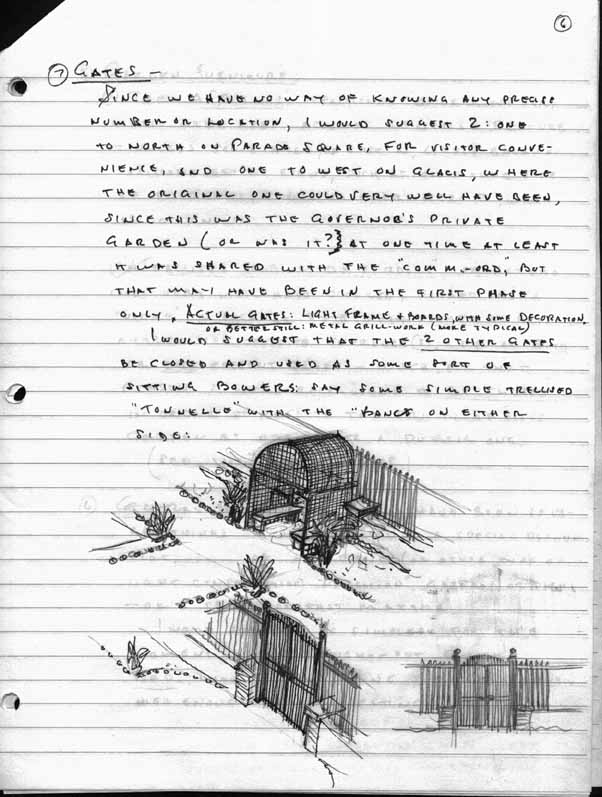 6
7 GATES -
SINCE WE HAVE NO WAY OF KNOWING ANY PRECISE
NUMBER OR LOCATION, I WOULD SUGGEST 2: ONE
TO NORTH ON PARADE SQUARE, FOR VISITOR CONVE-
NIENCE, AND ONE TO WEST ON GLACIS, WHERE
THE ORIGINAL ONE COULD VERY WELL HAVE BEEN,
SINCE THIS WAS THE GOVERNOR'S PRIVATE
GARDEN (OR WAS IT?) AT ONE TIME AT LEAST
IT WAS SHARED WITH THE "COMM.-ORD," BUT
THAT MAY HAVE BEEN IN THE FIRST PHASE
ONLY. ACTUAL GATES: LIGHT FRAME & BOARDS, WITH SOME DECORATION.
OR BETTER STILL: METAL GRILL-WORK (MORE TYPICAL)
I WOULD SUGGEST THAT THE 2 OTHER GATES
BE CLOSED AND USED AS SOME SORT OF
SITTING BOWERS: SAY SOME SIMPLE TRELLISED
"TONNELLE" WITH THE "BANCS ON EITHER
SIDE: